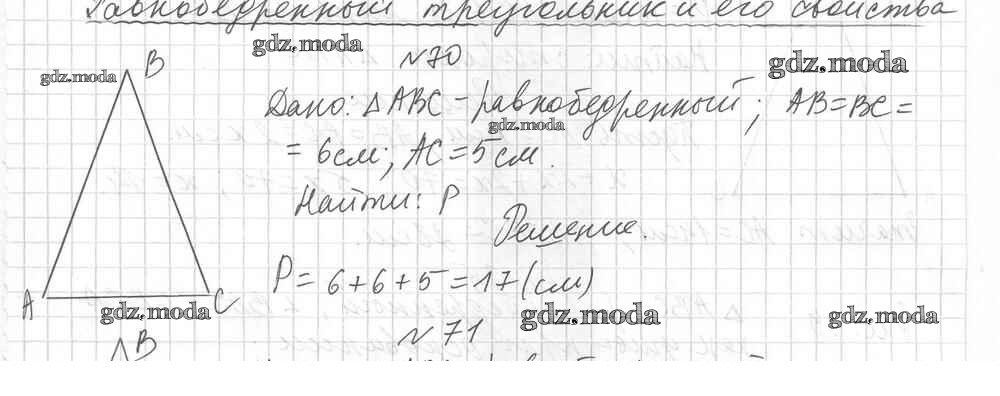 Равнобедренный треугольник и его свойства
gdz.moda
№70
gdz.moda
gdz.moda
B
Дано: △ABC - равнобедренный; AB=BC=
gdz.moda
= 6см; AC=5см.
Найти: P
Решение.
P= 6+6+5=17(см)
A
C
gdz.moda
gdz.moda
gdz.moda
№71
B